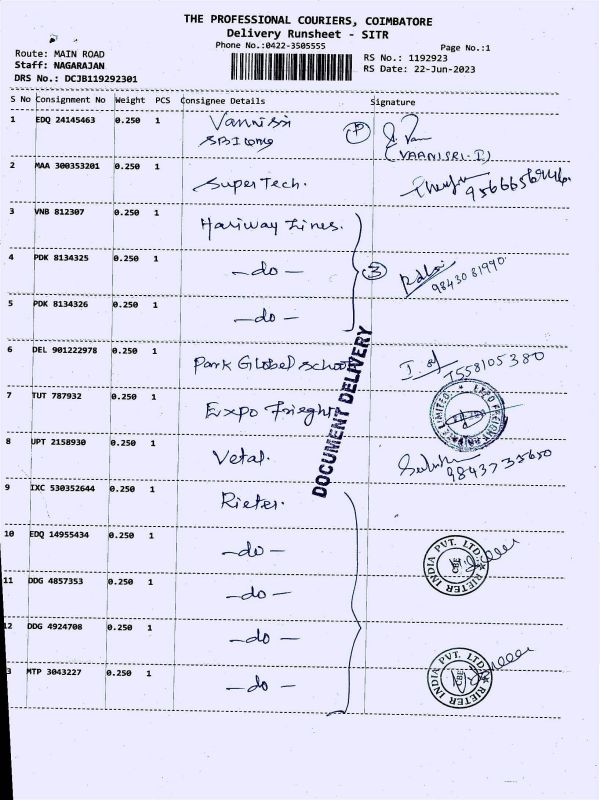 THE PROFESSIONAL COURIERS, COIMBATORE
Delivery Runsheet - SITR
Phone No.:0422-3505555
Page No.:1
Route: MAIN ROAD
Staff: NAGARAJAN
DRS No.: DCJB119292301
RS No.: 1192923
RS Date: 22-Jun-2023
S No Consignment No Weight PCS Consignee Details Signature
1 EDQ 24145463 0.250 1
(VAANISRI.I)
2 MAA 300353201 0.250 1 Super Tech.
3 VNB 812307 0.250 1 Hariway Lines.
4 PDK 8134325 0.250 1 -do- 3 9843081990
5 PDK 8134326 0.250 1 -do-
6 DEL 901222978 0.250 1 Park Global School 7558105380
7 TUT 787932 0.250 1 Expo Frieght
8 UPT 2158930 0.250 1 Vetal.
9 IXC 530352644 0.250 1 Rieter.
10 EDQ 14955434 0.250 1 -do-
RIETER INDIA PVT. LTD. CBE
11 DDG 4857353 0.250 1 -do-
12 DDG 4924708 0.250 1 -do-
3 MTP 3043227 0.250 1 -do-
RIETER INDIA PVT. LTD. CBE
DOCUMENT DELIVERY